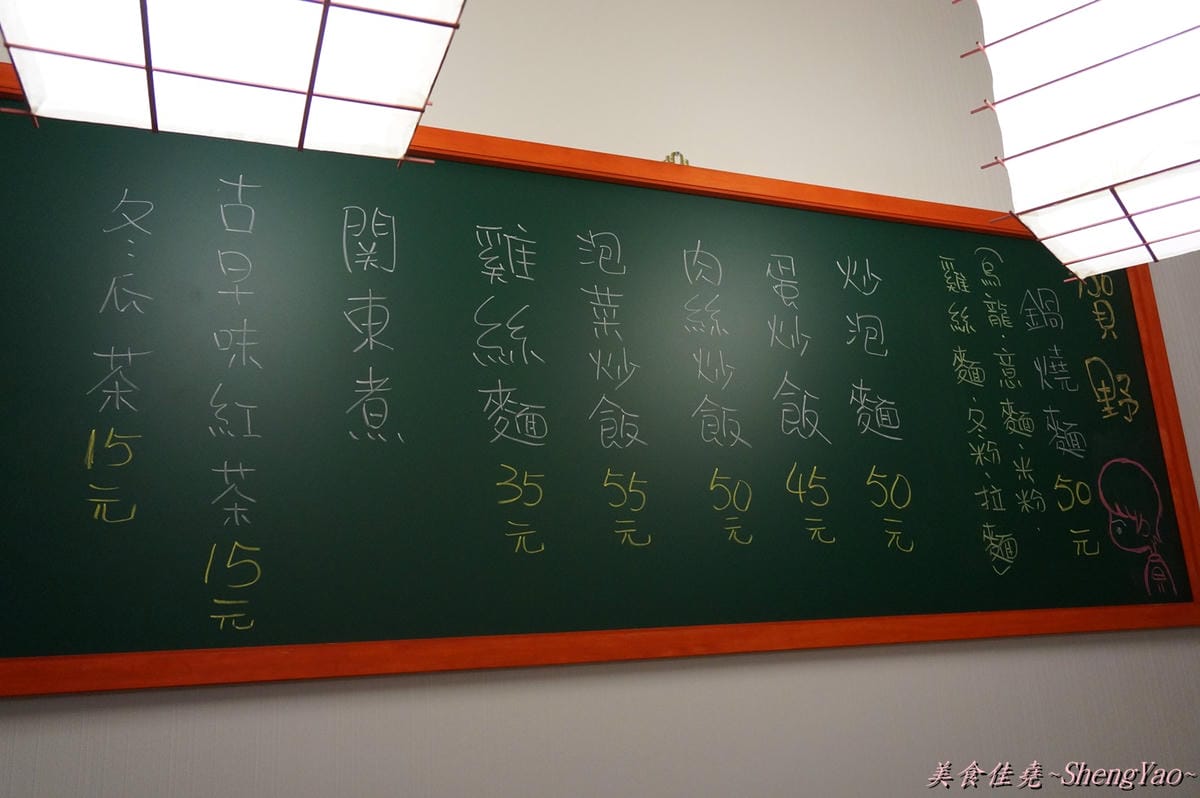 野
鍋燒麵50元
(烏龍、意麵、米粉、
雞絲麵、冬粉、拉麵)
炒泡麵50元
蛋炒飯45元
肉絲炒飯50元
泡菜炒飯55元
雞絲麵35元
関東煮
古早味紅茶15元
冬瓜茶15元
美食佳堯~ShengYao~